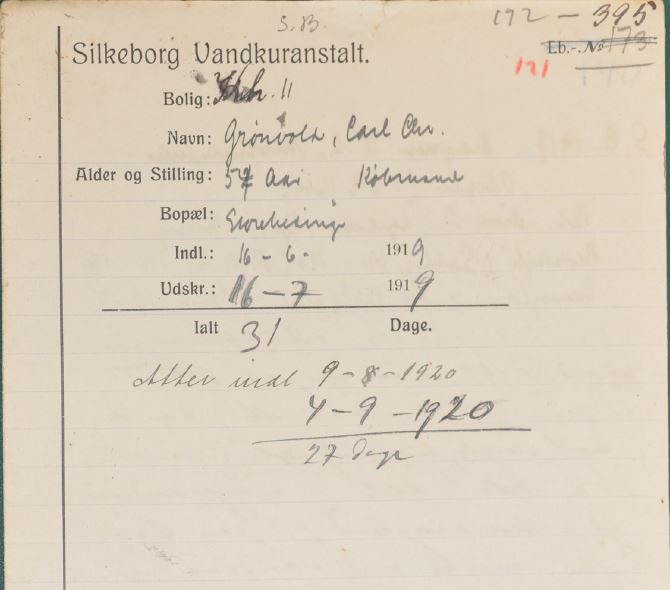 S.B. 172 - 395
Silkeborg Vandkuranstalt. Lb.-. № 173
171
Bolig: 11
Navn: Grönvold, Carl Chr.
Alder og Stilling: 57 Aar Købmand
Bopæl: Storehedinge
Indl.: 16 - 6 - 1919
Udskr.: 16 - 7 1919
Ialt 31 Dage.
Atter indl 9 - 8 - 1920
4 - 9 - 1920
27 Dage